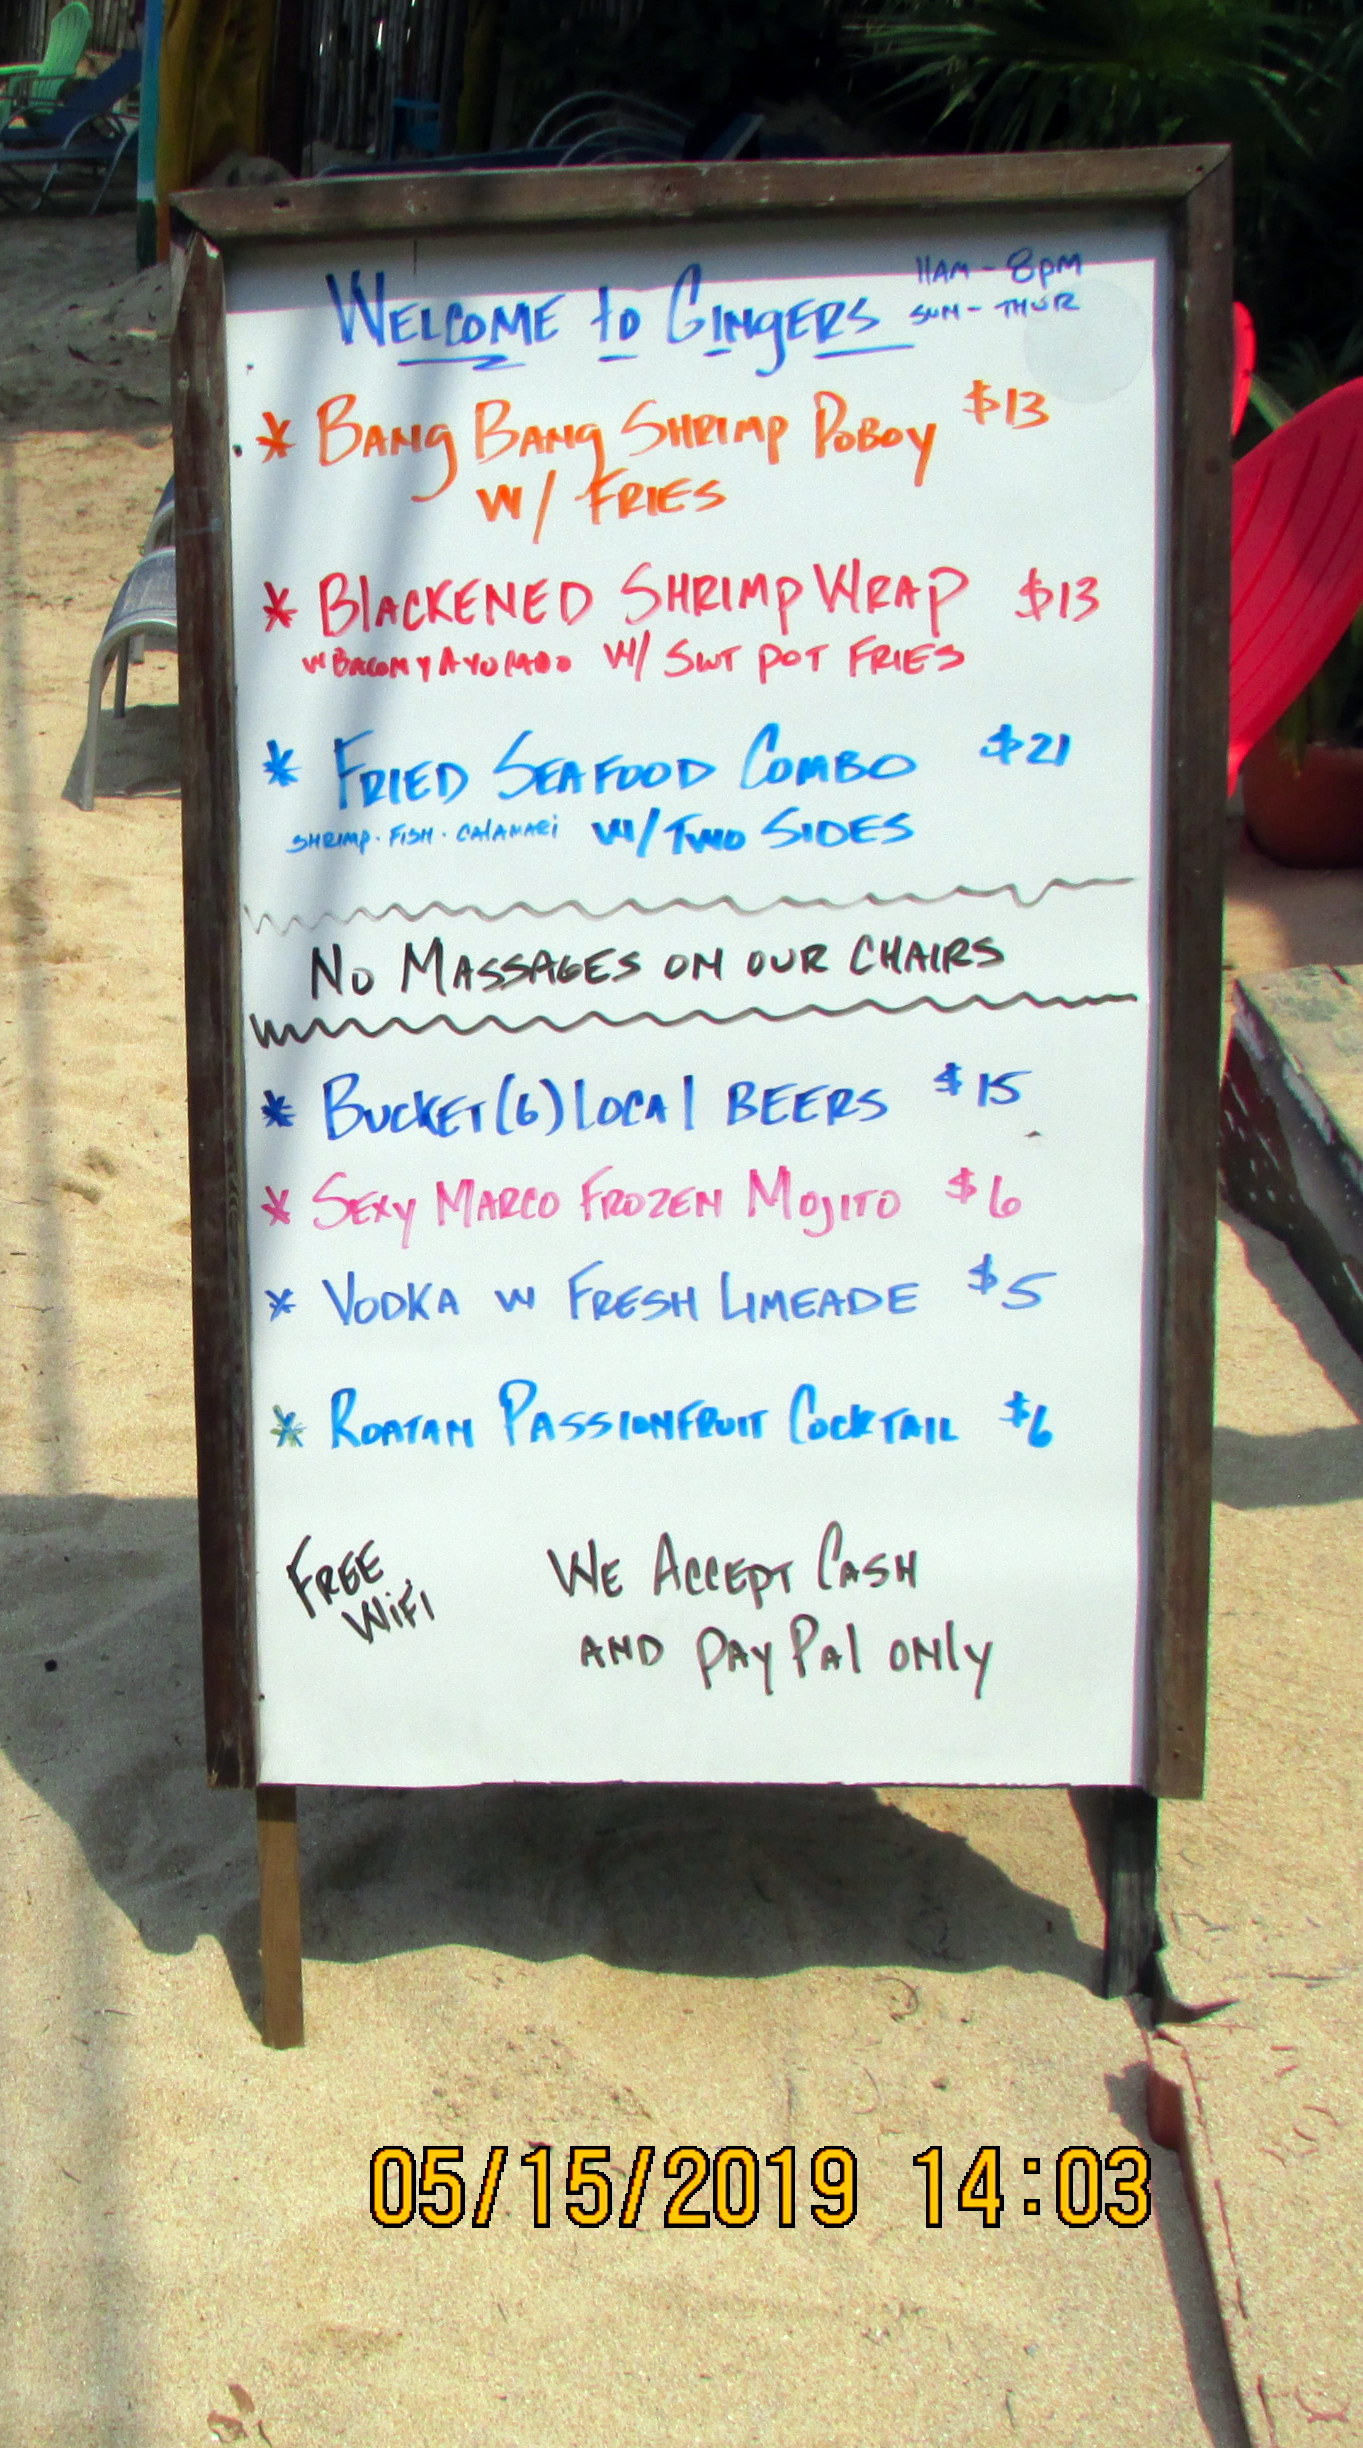 WELCOME to GINgERS 11AM - 8pM
SUN - THUR
* BANg BANg SHRIMP POBOY $13
W/ FRIES
* BlACKENED SHRIMP WRAP $13
W BACON Y AVOCADO W/ SWT POT FRIES
* FRIED SEAFOOD COMBO $21
SHRIMP · FISH · CAlAMARi W/ TWO SIDES
NO MASSAGES ON OUR CHAIRS
* BUCKET (6) lOCAl BEERS $15
* SEXY MARCO FROZEN MOJITO $6
* VODKA W FRESH LIMEADE $5
* ROATAN PASSIONFRUIT COCKTAIL $6
FREE
WiFi
WE ACCEPT CASH
AND PAYPAl ONlY
05/15/2019 14:03